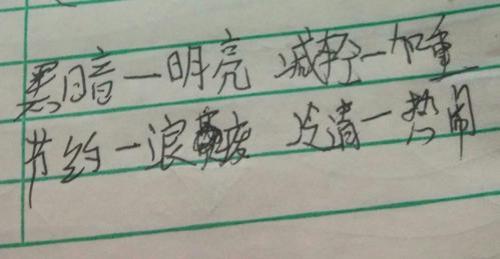 黑暗一明亮 减轻一加重
节约一浪费 冷清一热闹